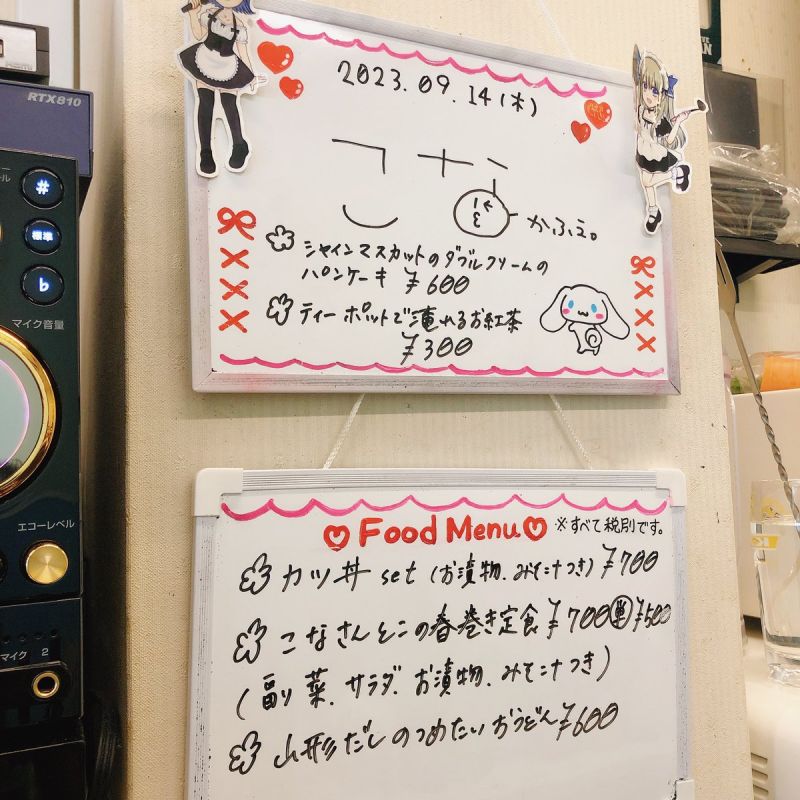 RTX810
#
標準
♭
マイク音量
エコーレベル
マイク 2
2023.09.14(木)
こな
かふぇ。
シャインマスカットのダブルクリームの
パンケーキ ¥600
ティーポットで淹れるお紅茶
¥300
Food Menu ※すべて税別です。
カツ丼 set (お漬物、みそ汁つき) ¥700
こなさんとこの春巻き定食 ¥700 単 ¥500
(副菜、サラダ、お漬物、みそ汁つき)
山形だしのつめたいおうどん ¥600